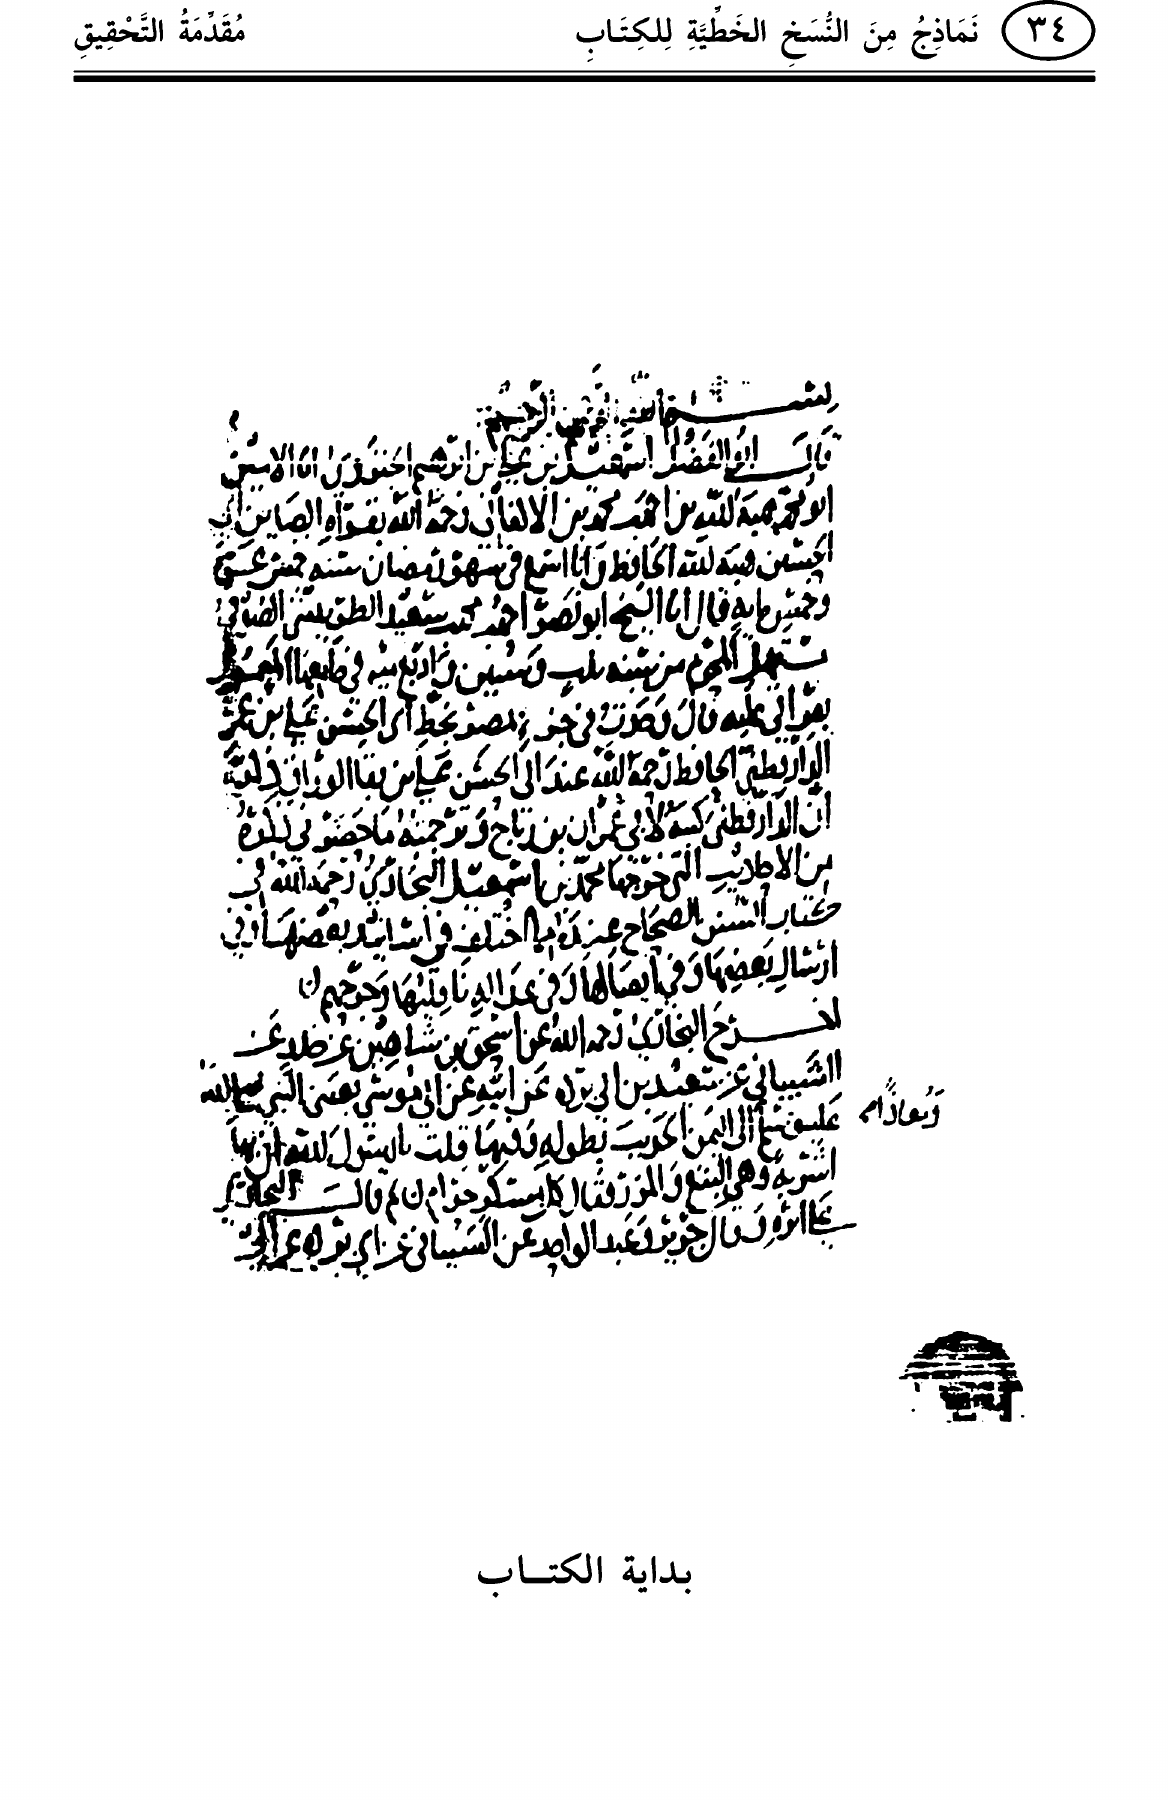 ٣٤ نَمَاذِجُ مِنَ النُّسَخِ الخَطِّيَّةِ لِلكِتَابِ مُقَدِّمَةُ التَّحْقِيقِ
بسم الله الرحمن الرحيم
قال ابو الفضل اسمعيل بن علي بن ابرهيم الجنزوي انا الامين
ابو محمد هبة الله بن احمد بن محمد بن الاكفاني رحمه الله بقراه الصاين ابي
الحسين هبه الله الحافظ وانا اسمع في شهر رمضان سنه خمس عشرة
وخمس مايه قال انا الشيخ ابو نصر احمد بن محمد بن سعيد الطريثيثي الصوفي
مستهل المحرم من سنه ثلث وستين واربع ميه في
بقراتي عليه قال وجدت في جزء بمصر بخط ابي الحسن علي بن عمر
الدارقطني الحافظ رحمه الله عند ابي الحسن علي بن بقا الوراق
ان الدارقطني كتبه لابي عمران بن رباح وترجمته ما حضرني ذكره
من الاحاديث التي خرجها محمد بن اسمعيل البخاري رحمه الله في
كتاب السنن الصحاح عنده مما اختلف في اسانيد بعضها وفي
ارسال بعضها وفي ايصالها وفي عدالة ناقليها وجرحهم
اخرج البخاري رحمه الله عن اسحق بن شاهين عن خلد عن
الشيباني عن سعيد بن ابي برده عن ابيه عن ابي موسى بعثني النبي صلى الله
عليه وسلم الى اليمن الحديث بطوله وفيها قلت يا رسول الله ان بها
ومعاذا
اشربه وهي البتع والمزر فقال كل مسكر حرام ثم قال البخاري
على اثره وقال جرير وعبد الواحد عن الشيباني عن ابي برده
بداية الكتــاب